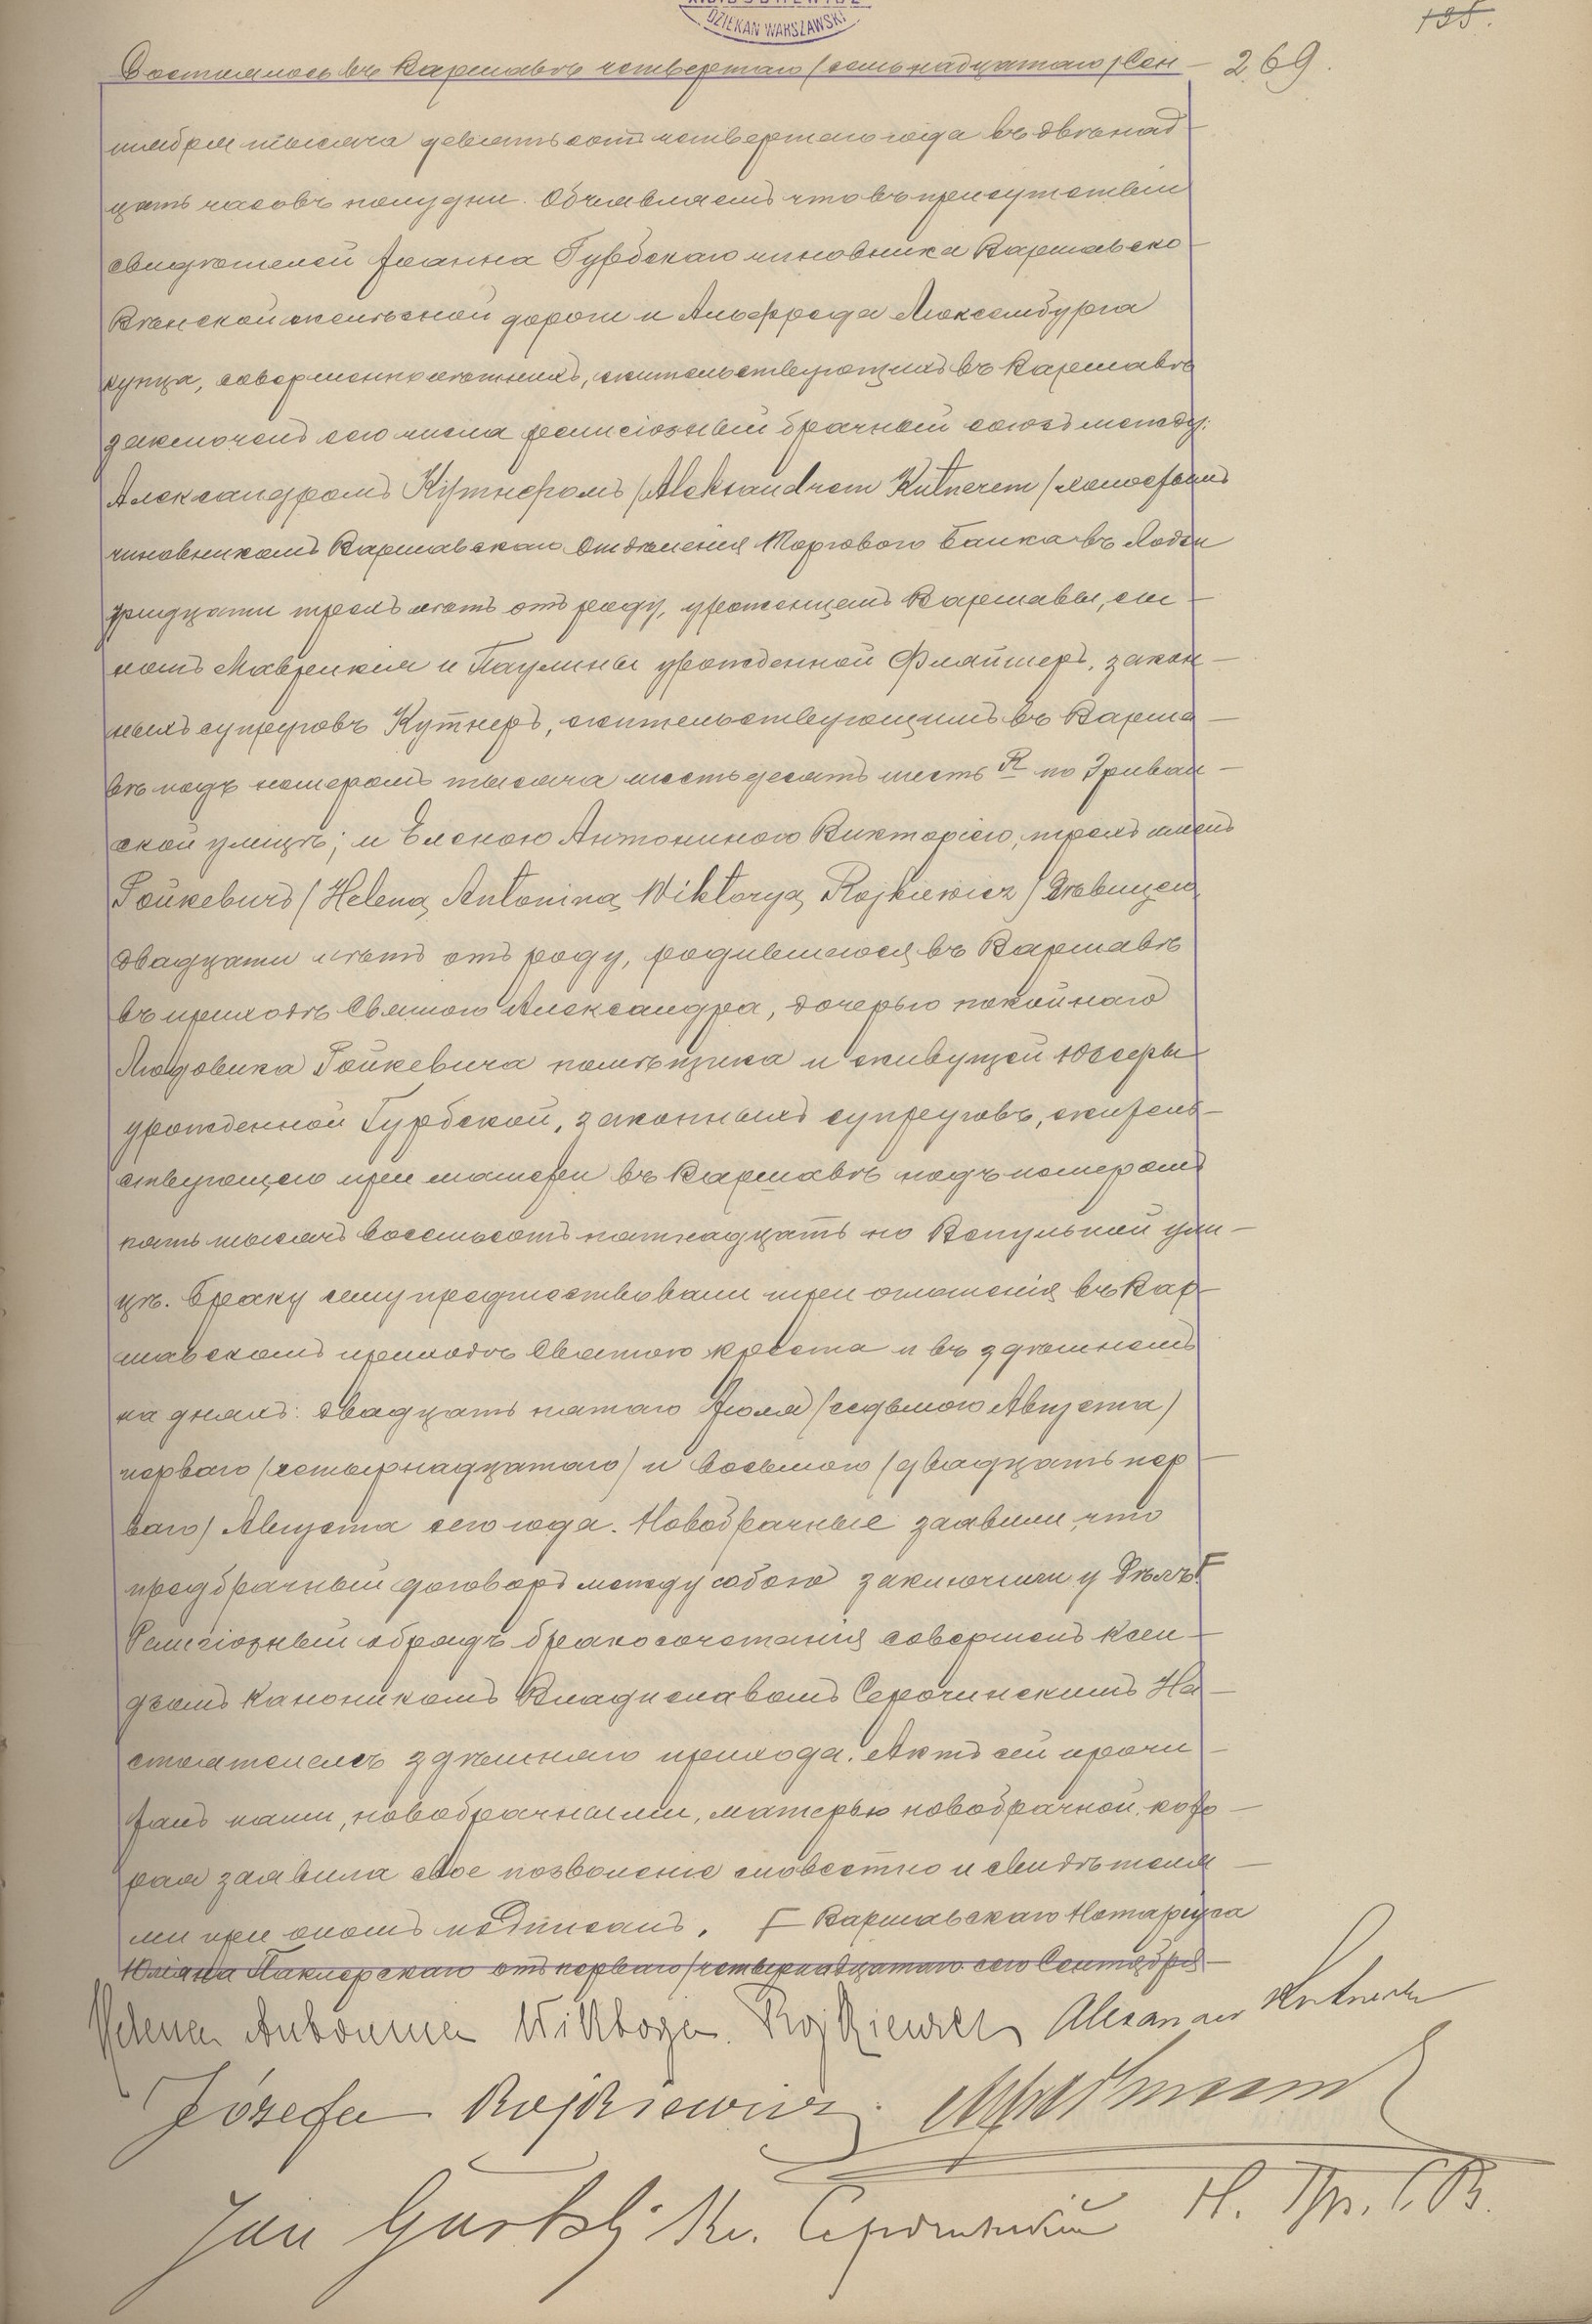 DZIEKAN WARSZAWSKI
135.
Состоялось въ Варшавѣ четвертаго /семьнадцатаго/ Сен- 269.
тября тысяча девятьсотъ четвертаго года въ двѣнад-
цать часовъ полудни. Объявляемъ что въ присутствіи
свидѣтелей Іоанна Гурбскаго чиновника Варшавско-
Вѣнской желѣзной дороги и Альфреда Люксембурга
купца, совершеннолѣтнихъ, жительствующихъ въ Варшавѣ
заключенъ сего числа религіозный брачный союзъ между:
Александромъ Кутнеромъ /Aleksandrem Kutnerem/ холостымъ
чиновникомъ Варшавскаго Отдѣленія Торговаго Банка въ Лодзи
тридцати трехъ лѣтъ отъ роду, уроженцемъ Варшавы, сы-
номъ Маврикія и Паулины урожденной Фляйшеръ, закон-
ныхъ супруговъ Кутнеръ, жительствующимъ въ Варша-
вѣ подъ номеромъ тысяча шестьдесятъ шесть R по Эриван-
ской улицѣ; и Еленою Антониною Викторіею, трехъ именъ
Ройкевичъ /Helena, Antonina, Wiktorya, Rojkiewicz/ дѣвицею
двадцати лѣтъ отъ роду, родившеюся въ Варшавѣ
въ приходѣ Святаго Александра, дочерью покойнаго
Людовика Ройкевича помѣщика и живущей Юзефы
урожденной Гурбской, законныхъ супруговъ, житель-
ствующею при матери въ Варшавѣ подъ номеромъ
пять тысячъ восемьсотъ пятнадцать по Вспульной ули-
цѣ. Браку сему предшествовали три оглашенія въ Вар-
шавскомъ приходѣ Святаго Креста и въ здѣшнемъ
на дняхъ: двадцать пятаго Іюля /седьмого Августа/
перваго /четырнадцатаго/ и восьмого /двадцать пер-
ваго/ Августа сего года. Новобрачные заявили, что
предбрачный договоръ между собою заключили у Дѣлъ
Религіозный обрядъ бракосочетанія совершенъ Ксен-
дзомъ Каноникомъ Владиславомъ Серочинскимъ На-
стоятелемъ здѣшняго прихода. Актъ сей прочи-
танъ нами, новобрачными, матерью новобрачной, кото-
рая заявила свое позволеніе словестно и свидѣтеля-
ми при ономъ подписанъ. Варшавскаго Нотаріуса
отъ перваго /четырнадцатаго/ сего Сентября
Helena Antonina Wiktorya Rojkiewicz Alexander Kutner
Józefa Rojkiewicz.
Jan Gurbski Кс. Серочинскій Н. Пр. С. В.